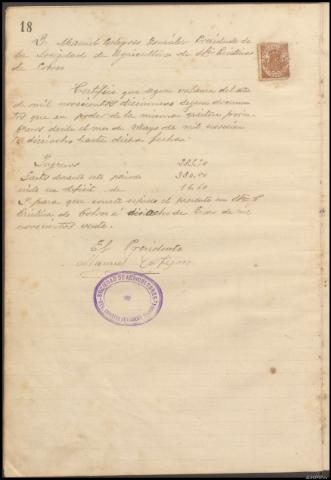 18
D. Manuel Cortegoso González Presidente de
la Sociedad de Agricultura de Sta Cristina
de Cobres
Certifico que segun balance del año
de mil novecientos diecinueve segun documen
tos que en poder de la misma existen
desde el mes de Mayo de mil novecien
tos dieciocho hasta dicha fecha.
Ingresos
Gastos durante este periodo 380,00
existe un deficit de 16,60
Y para que conste expido el presente en Sta
Cristina de Cobres á dieciocho de Enero de mil
novecientos veinte.
El Presidente
Manuel Cortegoso
SOCIEDAD DE AGRICULTORES